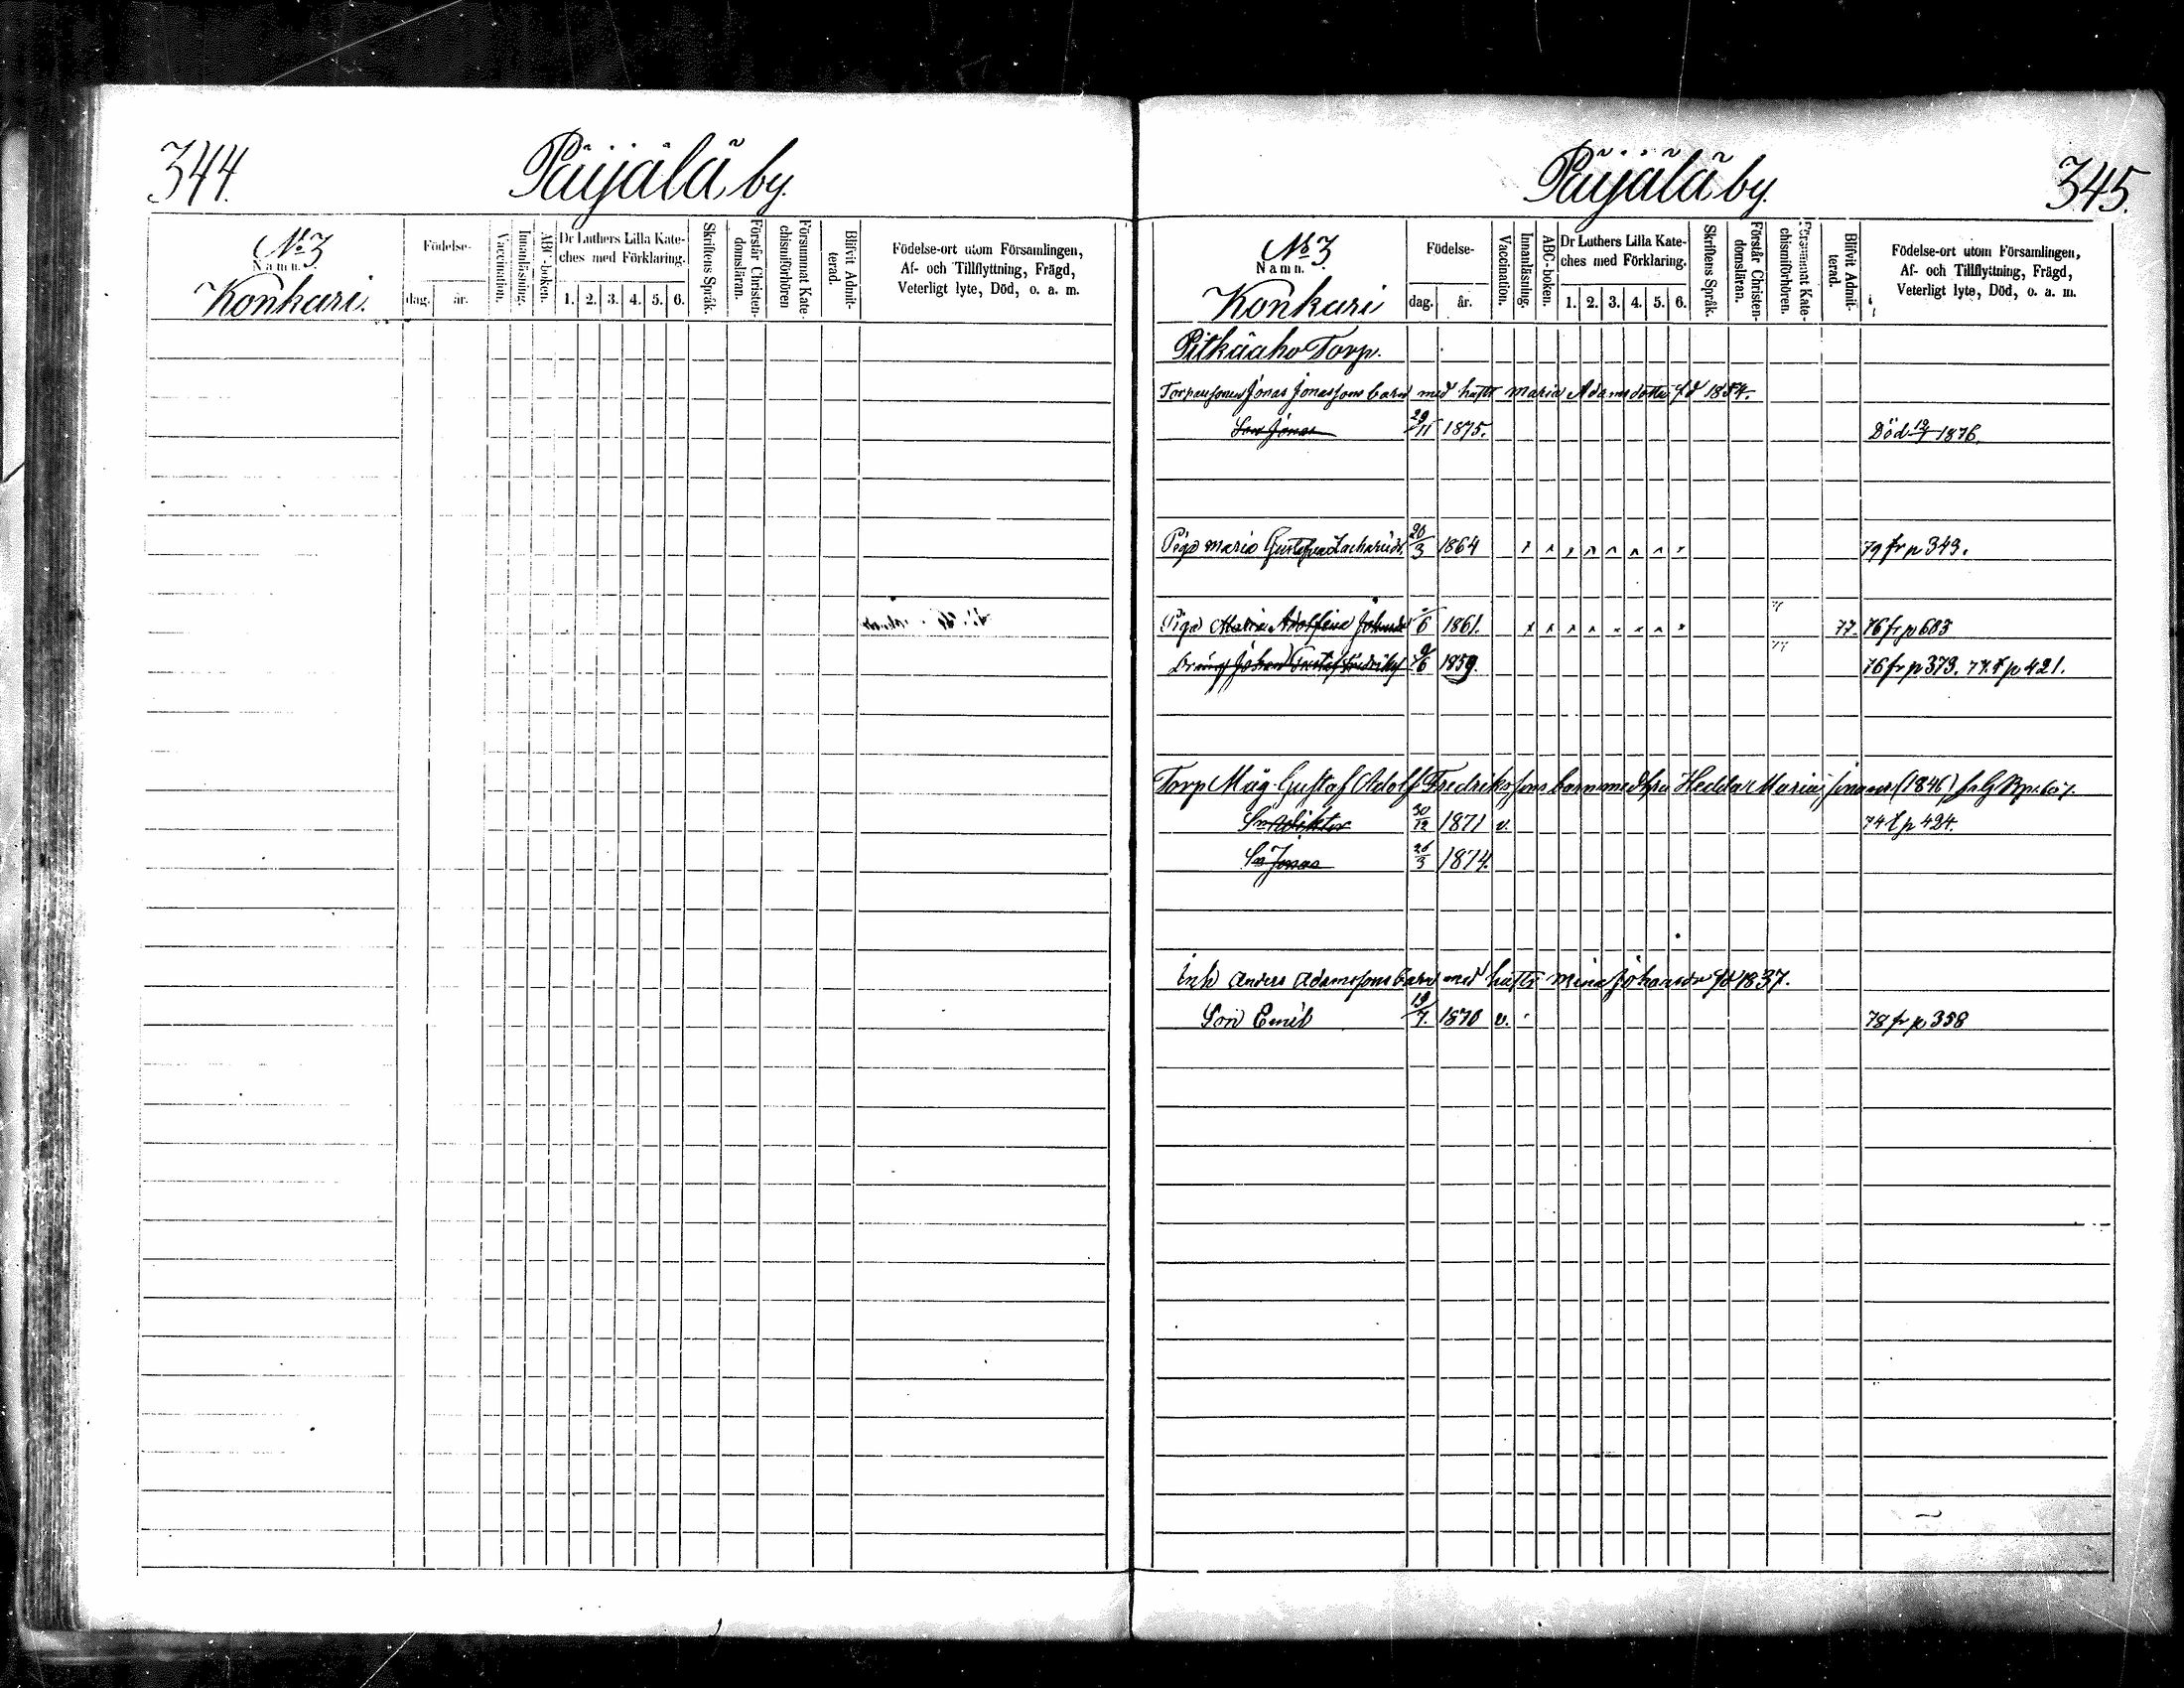 344.
Päijälä by.
No 3
Namn.
Konkari.
Födelse-
dag.
år.
Vaccination.
Innanläsning.
ABC-boken.
Dr Luthers Lilla Kate-
ches med Förklaring.
1. 2. 3. 4. 5. 6.
Skriftens Språk.
Förstår Christen-
domsläran.
Försummat Kate-
chismiförhören
Blifvit Admit-
terad.
Födelse-ort utom Församlingen,
Af- och Tillflyttning, Frägd,
Veterligt lyte, Död, o. a. m.
Päijälä by.
345.
No 3
Namn.
Konkari
Födelse-
dag.
år.
Vaccination.
Innanläsning.
ABC-boken.
Dr Luthers Lilla Kate-
ches med Förklaring.
1. 2. 3. 4. 5. 6.
Skriftens Språk.
Förstår Christen-
domsläran.
Försummat Kate-
chismiförhören.
Blifvit Admit-
terad.
Födelse-ort utom Församlingen,
Af- och Tillflyttning, Frägd,
Veterligt lyte, Död, o. a. m.
Pitkäaho Torp.
Jonas Jonassons barn med hustr Maria Adamsdotter fd 1854.
Son Jonas 29/11 1875. Död 1876.
Piga Maria Gustafva Zachariidr. 20/3 1864 79 fr p 343.
Piga Maria Adolfina 6 1861. 77. 76 fr p 603
Dräng Johan Gustaf Fredriks 6 1859. 76 fr p 373. 77 t p 421.
Torp Måg Gustaf Adolf Fredrikssons barn med hru Hedda Maria (1846)
Sn Wiktor 30/12 1871 v. 74 t p 424.
Sn Jonas 26/3 1874.
Inh Anders Adamssons barn med hustr Mina Johansdr fd 1837.
Son Emil 19/7. 1870 v. 78 fr p 358